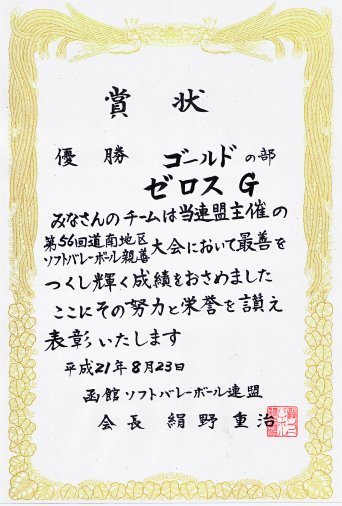 賞状
優勝 ゴールドの部
ゼロスG
みなさんのチームは当連盟主催の
第56回道南地区
ソフトバレーボール親善大会において最善を
つくし輝く成績をおさめました
ここにその努力と栄誉を讃え
表彰いたします
平成21年8月23日
函館ソフトバレーボール連盟
会長 絹野重治